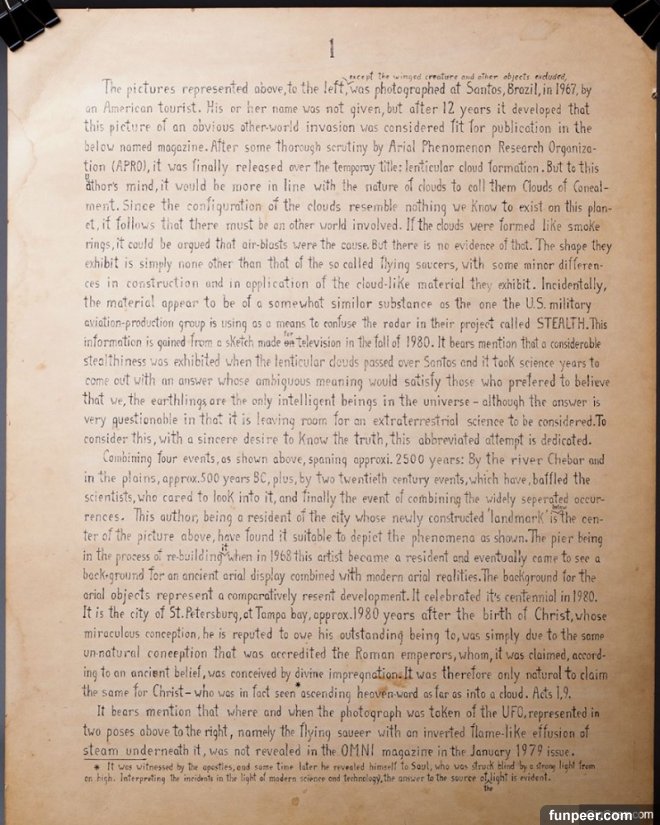 1
except the winged creature and other objects excluded,
The pictures represented above, to the left, was photographed at Santos, Brazil, in 1967, by
an American tourist. His or her name was not given, but after 12 years it developed that
this picture of an obvious other-world invasion was considered fit for publication in the
below named magazine. After some thorough scrutiny by Arial Phenomenon Research Organiza-
tion (APRO), it was finally released over the temporay title: lenticular cloud formation. But to this
author's mind, it would be more in line with the nature of clouds to call them Clouds of Conceal-
ment. Since the configuration of the clouds resemble nothing we know to exist on this plan-
et, it follows that there must be an other world involved. If the clouds were formed like smoke
rings, it could be argued that air-blasts were the cause. But there is no evidence of that. The shape they
exhibit is simply none other than that of the so called flying saucers, with some minor differen-
ces in construction and in application of the cloud-like material they exhibit. Incidentally,
the material appear to be of a somewhat similar substance as the one the U.S. military
aviation-production group is using as a means to confuse the radar in their project called STEALTH. This
information is gained from a sketch made for television in the fall of 1980. It bears mention that a considerable
stealthiness was exhibited when the lenticular clouds passed over Santos and it took science years to
come out with an answer whose ambiguous meaning would satisfy those who preferred to believe
that we, the earthlings, are the only intelligent beings in the universe - although the answer is
very questionable in that it is leaving room for an extraterrestrial science to be considered. To
consider this, with a sincere desire to know the truth, this abbreviated attempt is dedicated.
Combining four events, as shown above, spaning approxi. 2500 years: By the river Chebar and
in the plains, approx. 500 years BC, plus, by two twentieth century events, which have, baffled the
scientists, who cared to look into it, and finally the event of combining the widely seperated occur-
rences. This author, being a resident of the city whose newly constructed 'landmark' is below the cen-
ter of the picture above, have found it suitable to depict the phenomena as shown. The pier being
in the process of re-building it when in 1968 this artist became a resident and eventually came to see a
background for an ancient arial display combined with modern arial realities. The background for the
arial objects represent a comparatively resent development. It celebrated it's centennial in 1980.
It is the city of St. Petersburg, at Tampa bay, approx. 1980 years after the birth of Christ, whose
miraculous conception, he is reputed to owe his outstanding being to, was simply due to the same
un-natural conception that was accredited the Roman emperors, whom, it was claimed, accord-
ing to an ancient belief, was conceived by divine impregnation. It was therefore only natural to claim
the same for Christ - who was in fact seen * ascending heaven-ward as far as into a cloud. Acts 1,9.
It bears mention that where and when the photograph was taken of the UFO, represented in
two poses above to the right, namely the flying saueer with an inverted flame-like effusion of
steam underneath it, was not revealed in the OMNI magazine in the January 1979 issue.
* It was witnessed by the apostles, and some time later he revealed himself to Saul, who was struck blind by a strong light from
on high. Interpreting the incidents in the light of modern science and technology, the answer to the source of the light is evident.
funpeer.com